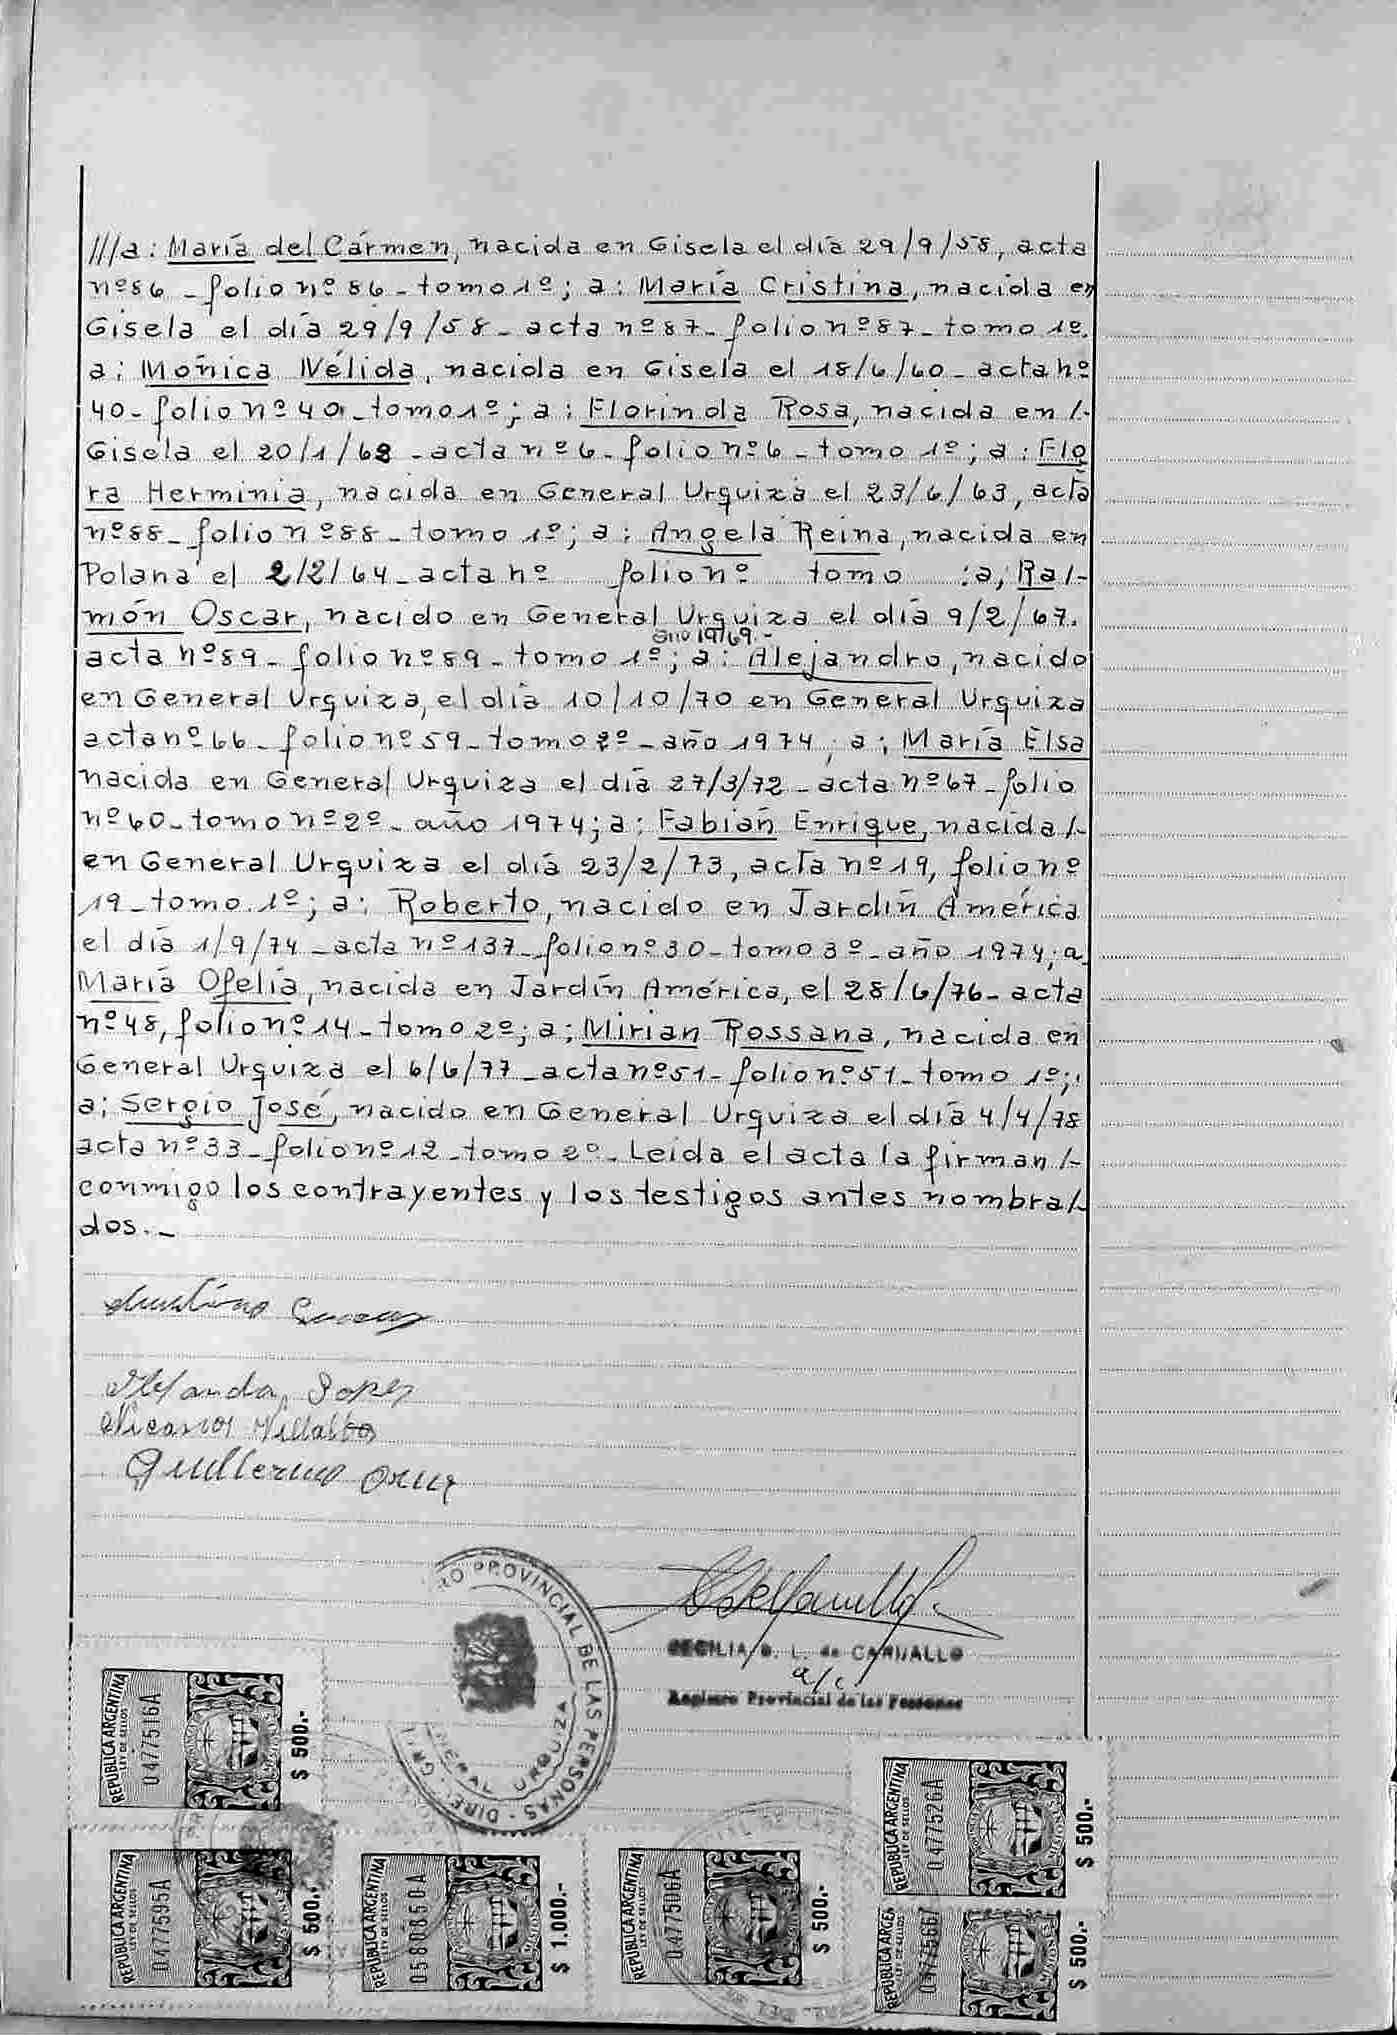 ///a: María del Cármen, nacida en Gisela el día 29/9/58, acta
nº86 - folio nº 86 - tomo 1º; a: María Cristina, nacida en
Gisela el día 29/9/58 - acta nº87 - folio nº87 - tomo 1º.
a: Mónica Nélida, nacida en Gisela el 18/6/60 - acta nº
40 - folio nº 40 - tomo 1º; a: Florinda Rosa, nacida en /-
Gisela el 20/1/62 - acta nº6 - folio nº6 - tomo 1º; a: Flo
ra Herminia, nacida en General Urquiza el 23/6/63, acta
nº88 - folio nº88 - tomo 1º; a: Angela Reina, nacida en
Polana el 2/2/64 - acta nº folio nº tomo :a; Ra/-
món Oscar, nacido en General Urquiza el día 9/2/67.
año 1969.-
acta nº89 - folio nº89 - tomo 1º; a: Alejandro, nacido
en General Urquiza, el día 10/10/70 en General Urquiza
acta nº66 - folio nº59 - tomo 2º - año 1974; a; María Elsa
nacida en General Urquiza el día 27/3/72 - acta nº67 - folio
nº60 - tomo nº2º - año 1974; a: Fabián Enrique, nacida /-
en General Urquiza el día 23/2/73, acta nº19, folio nº
19 - tomo.1º; a: Roberto, nacido en Jardín América
el día 1/9/74 - acta nº137 - folio nº30 - tomo 3º - año 1974; a
María Ofelia, nacida en Jardín América, el 28/6/76 - acta
nº48, folio nº14 - tomo 2º; a; Mirian Rossana, nacida en
General Urquiza el 6/6/77 - acta nº51 - folio nº51 - tomo 1º;
a; Sergio José, nacido en General Urquiza el día 4/4/78
acta nº33 - folio nº12 - tomo 2º - Leída el acta la firman /-
conmigo los contrayentes y los testigos antes nombra/-
dos.-
Villalba
Guillermo
RO PROVINCIAL DE LAS PERSONAS - DIRE
NERAL URQUIZA
CECILIA L. de CARVALLO
a/c
Registro Provincial de las Personas
REPUBLICA ARGENTINA
LEY DE SELLOS
0477516A
$ 500.-
REPUBLICA ARGENTINA
LEY DE SELLOS
0477526A
$ 500.-
REPUBLICA ARGENTINA
LEY DE SELLOS
0477595A
$ 500.-
REPUBLICA ARGENTINA
LEY DE SELLOS
0580850A
$ 1.000.-
REPUBLICA ARGENTINA
LEY DE SELLOS
0477506A
$ 500.-
REPUBLICA ARGEN
LEY DE SELLOS
$ 500.-